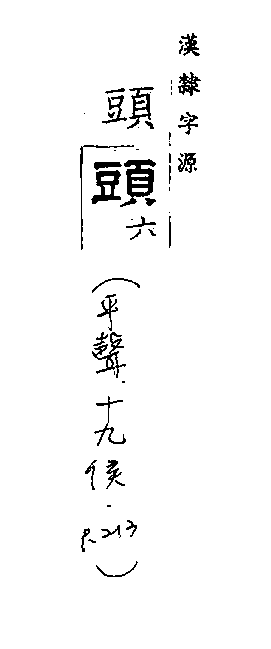 漢隸字源
頭
頭
六
(平聲.十九侯.P.213)